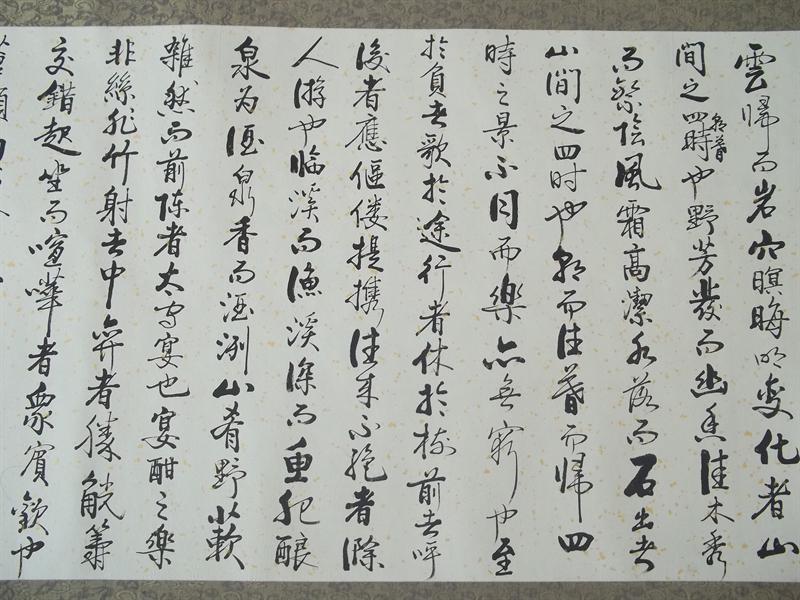 雲歸而岩穴暝晦明變化者山
間之四時朝暮也野芳發而幽香佳木秀
而繁陰風霜高潔水落而石出者
山間之四时也朝而往暮而歸四
時之景不同而樂亦無窮也至
於負者歌於途行者休於樹前者呼
後者應傴僂提攜往来不絕者滁
人游也临溪而漁溪深而魚肥釀
泉为酒泉香而酒洌山肴野蔌
雜然而前陈者太守宴也宴酣之樂
非絲非竹射者中弈者勝觥籌
交錯起坐而喧嘩者衆賓歡也